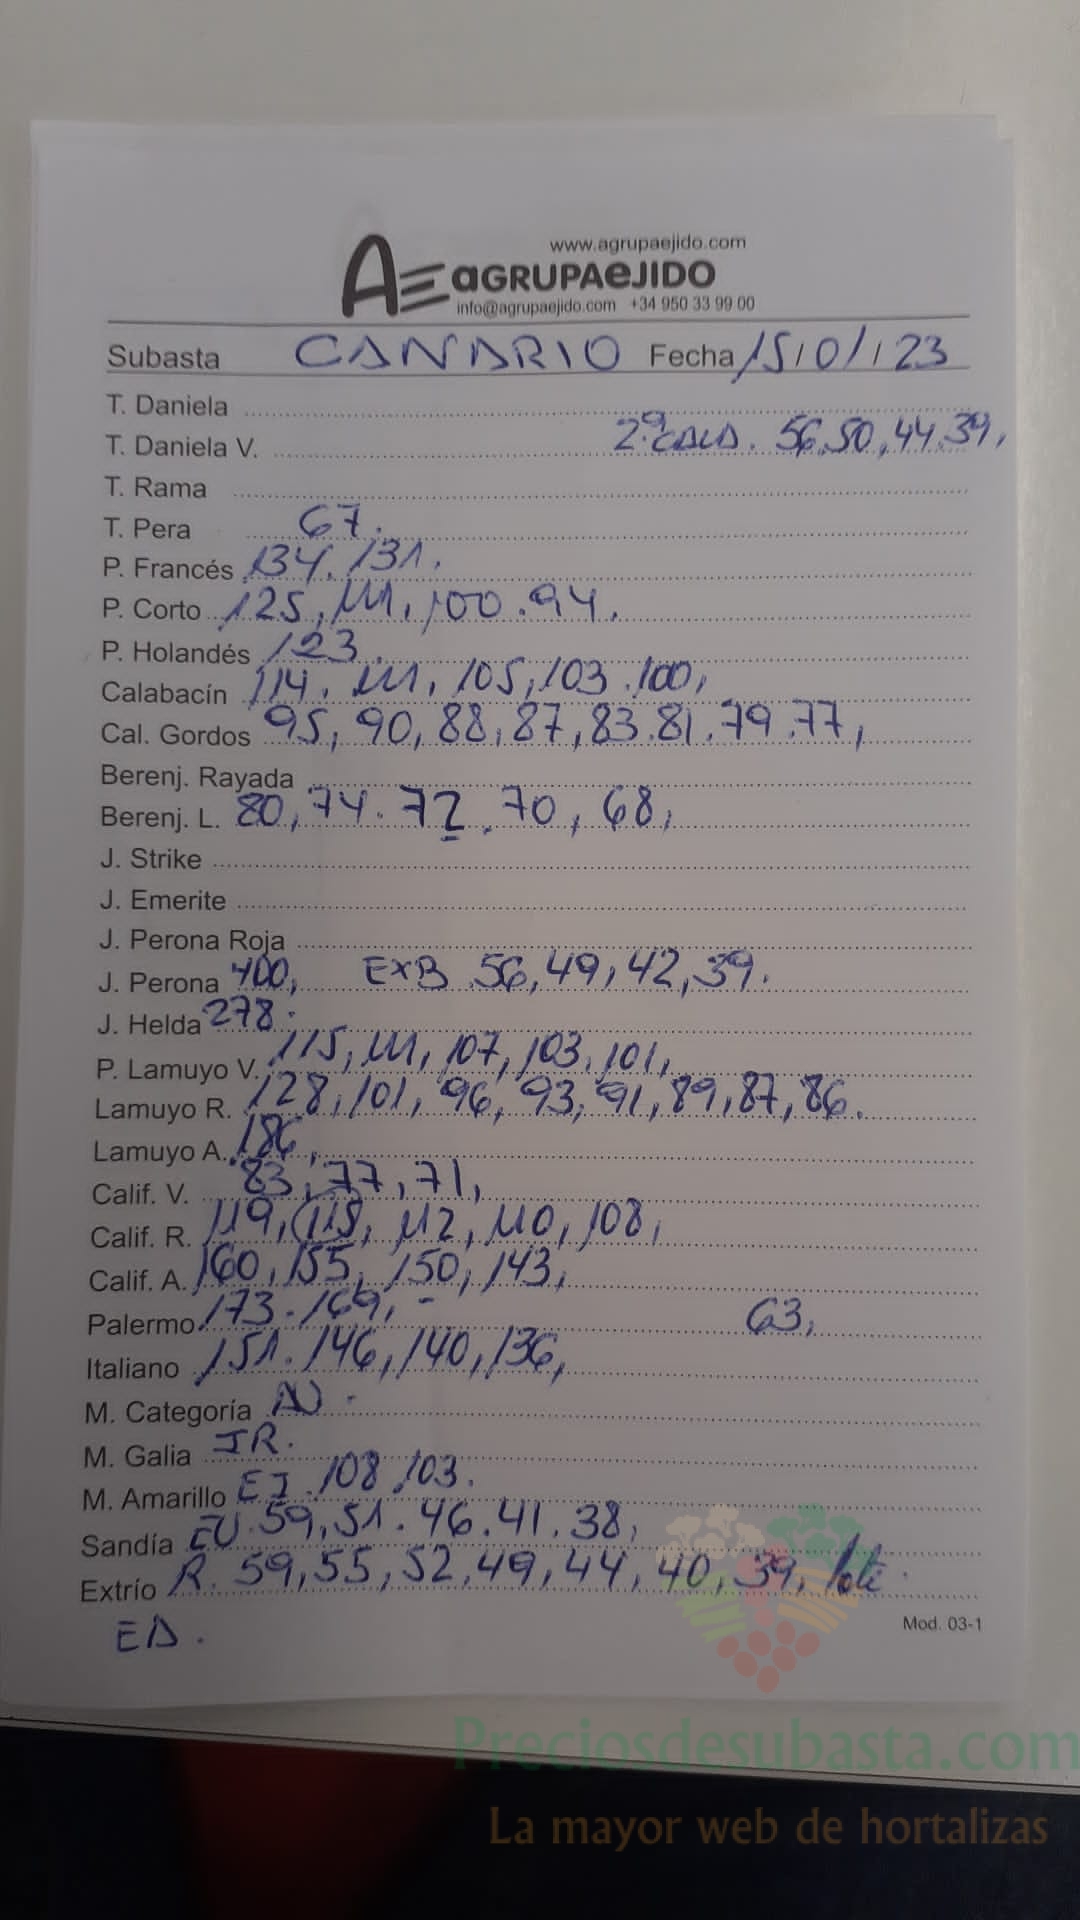 www.agrupaejido.com
AE aGRUPAeJIDO
info@agrupaejido.com +34 950 33 99 00
Subasta CANARIO Fecha 15/01/23
T. Daniela
T. Daniela V. 2ª CALID. 56.50,44.39,
T. Rama
T. Pera 67.
P. Francés 134. 131.
P. Corto 125, 111, 100.94.
P. Holandés 123.
Calabacín 114. 111, 105, 103.100,
Cal. Gordos 95, 90, 88, 87, 83.81.79.77,
Berenj. Rayada
Berenj. L. 80, 74. 72. 70, 68,
J. Strike
J. Emerite
J. Perona Roja
J. Perona 400, EXB 56, 49, 42, 39.
J. Helda 278.
P. Lamuyo V. 115, 111, 107, 103, 101,
Lamuyo R. 128, 101, 96, 93, 91, 89, 87, 86.
Lamuyo A. 186,
Calif. V. 83, 77, 71,
Calif. R. 119, 115, 112, 110, 108,
Calif. A. 160, 155, 150, 143,
Palermo 173. 169, - 63,
Italiano 151. 146, 140, 136,
M. Categoría
M. Galia JR.
M. Amarillo EJ. 108, 103.
Sandía EU. 59, 51. 46. 41. 38,
Extrío R. 59, 55, 52, 49, 44, 40, 39,
EA.
Mod. 03-1
Preciosdesubasta.com
La mayor web de hortalizas